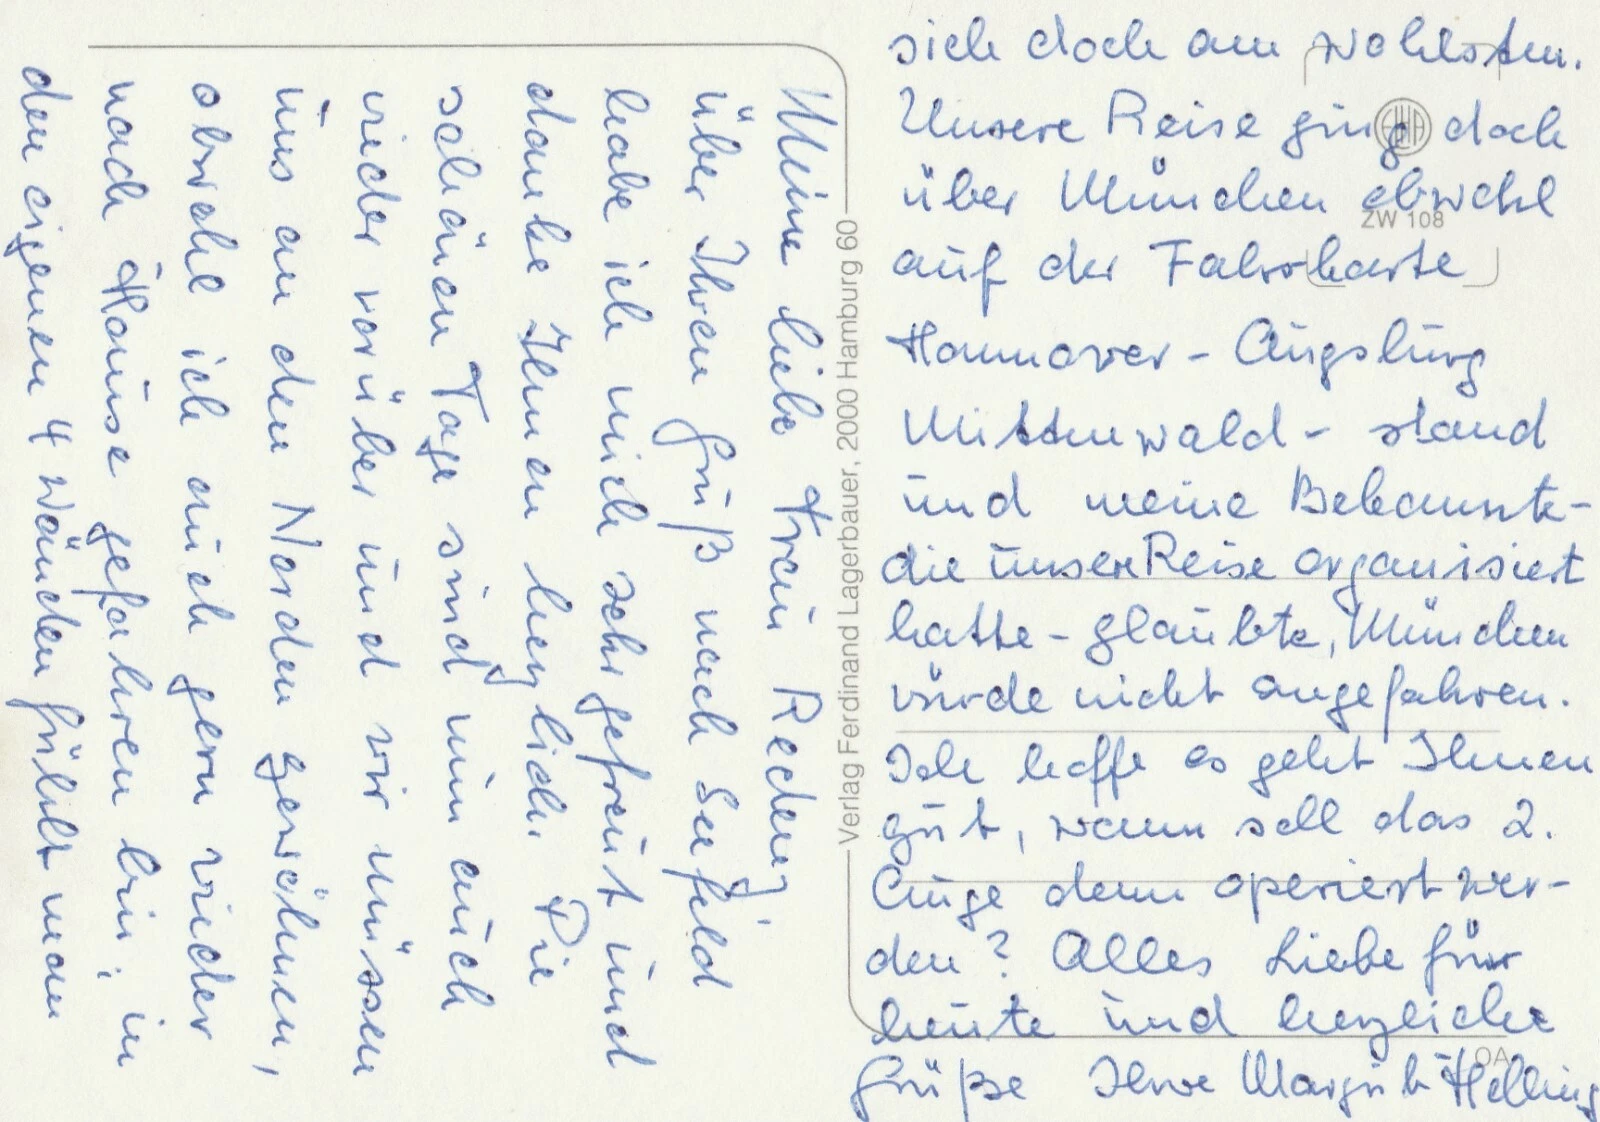 Meine liebe Frau Redeng,
über Ihren Gruß nach Seefeld
habe ich mich sehr gefreut und
danke Ihnen herzlich. Die
schönen Tage sind nun auch
wieder vorüber und wir müssen
uns an den Norden gewöhnen,
obwohl ich auch gern wieder
nach Hause gefahren bin, in
den eigenen 4 Wänden fühlt man
sich doch am wohlsten.
Unsere Reise ging doch
über München obwohl
auf der Fahrkarte
Hannover - Augsburg
Mittenwald - stand
und meine Bekannte -
die unsere Reise organisiert
hatte - glaubte, München
würde nicht angefahren.
Ich hoffe es geht Ihnen
gut, wann soll das 2.
Auge denn operiert wer-
den? Alles Liebe für
heute und herzliche
Grüße Ihre Margrit Helling
Verlag Ferdinand Lagerbauer, 2000 Hamburg 60
ZW 108
OA